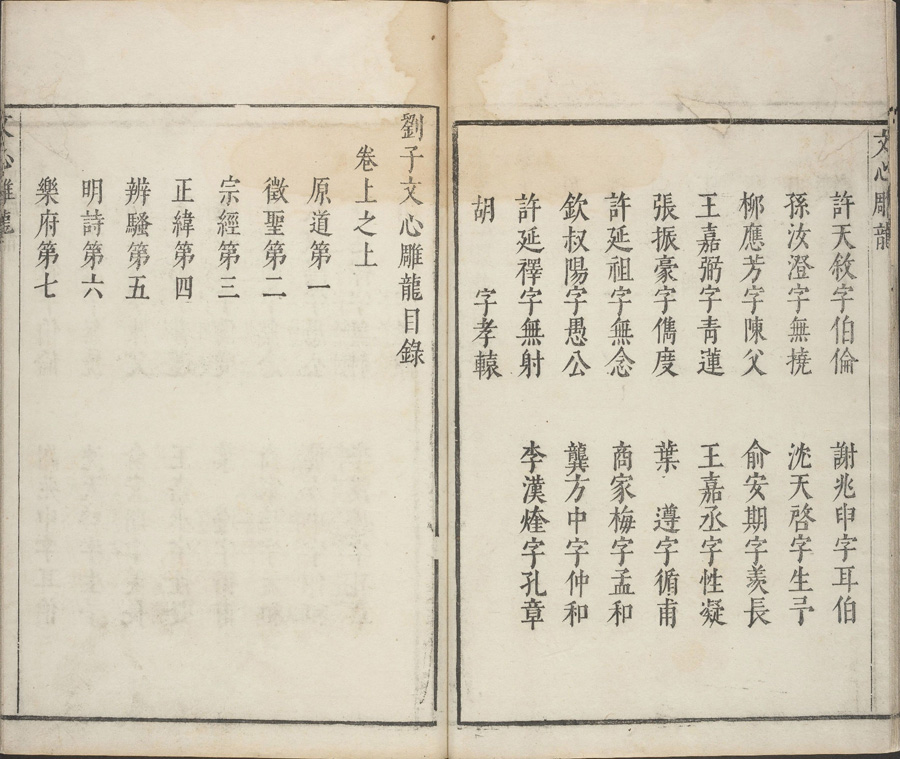 文心雕龍
許天敘字伯倫 謝兆申字耳伯
孫汝澄字無撓 沈天啓字生予
柳應芳字陳父 俞安期字羨長
王嘉弼字青蓮 王嘉丞字性凝
張振豪字儁度 葉 遵字循甫
許延祖字無念 商家梅字孟和
欽叔陽字愚公 龔方中字仲和
許延禪字無射 李漢煃字孔章
胡 字孝轅
劉子文心雕龍目錄
卷上之上
原道第一
徵聖第二
宗經第三
正緯第四
辨騷第五
明詩第六
樂府第七
文心雕龍